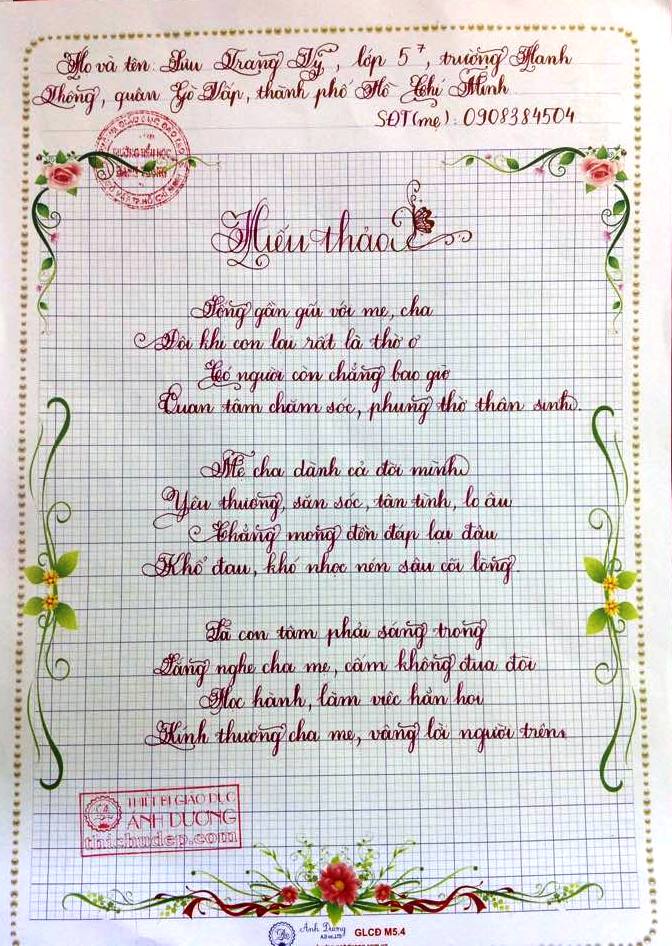 Họ và tên: Lưu Trang Vy, lớp 5⁷, trường Hanh
Thông, quận Gò Vấp, thành phố Hồ Chí Minh
SĐT(mẹ): 0908384504
Hiếu thảo
Sống gần gũi với mẹ, cha
Đôi khi con lại rất là thờ ơ
Có người còn chẳng bao giờ
Quan tâm chăm sóc, phụng thờ thân sinh.
Mẹ cha dành cả đời mình
Yêu thương, săn sóc, tận tình, lo âu
Chẳng mong đền đáp lại đâu
Khổ đau, khó nhọc nén sâu cõi lòng.
Là con tâm phải sáng trong
Lắng nghe cha mẹ, cấm không đua đòi
Học hành, làm việc hẳn hoi
Kính thương cha mẹ, vâng lời người trên.
THIẾT BỊ GIÁO DỤC
ANH DUONG
thichudep.com
Anh Dương
GLCĐ M5.4